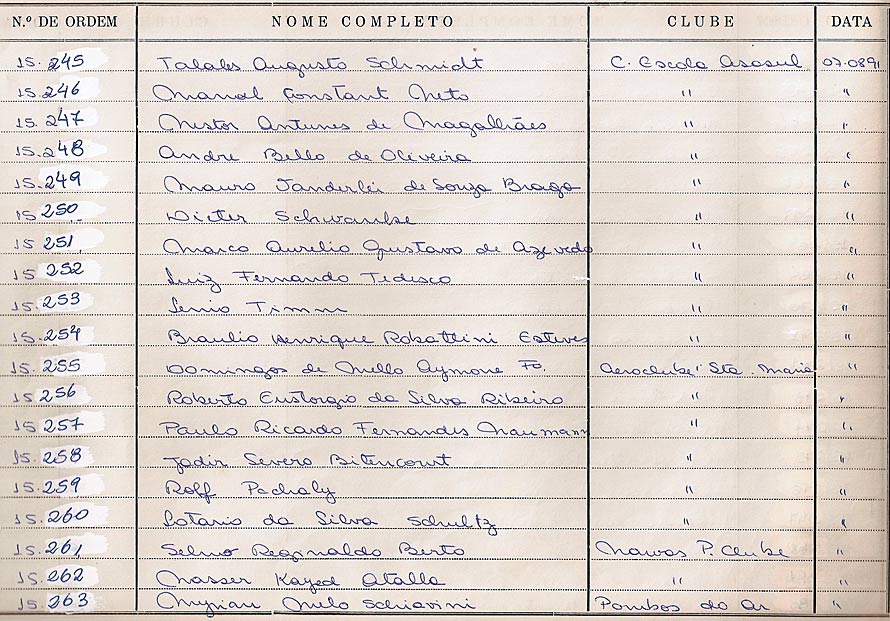 N.º DE ORDEM NOME COMPLETO CLUBE DATA
15.245 Talales Augusto Schmidt C. Escola Asasul 07.0891
15.246 Manol Constant Neto " "
15.247 Nestor Antunes de Magalhães " "
15.248 Andre Bello de Oliveira " "
15.249 Mauro Janderlei de Souza Braga " "
15.250 Dieter Schwambe " "
15.251 Marco Aurelio Gustavo de Azevedo " "
15.252 Luiz Fernando Tedesco " "
15.253 Lenio Timm " "
15.254 Braulio Henrique Robattini Esteves " "
15.255 Domingos de Mello Aymone Fo. Aeroclube Sta. Maria "
15.256 Roberto Eustorgio da Silva Ribeiro " "
15.257 Paulo Ricardo Fernandes Naumann " "
15.258 Jadir Severo Bitencourt " "
15.259 Rolf Pachaly " "
15.260 Lotario da Silva Schultz " "
15.261 Selmo Reginaldo Berto Navoas P. Clube "
15.262 Nasser Kayed Atalla " "
15.263 Myrian Melo Schiavini Pombos do Ar "